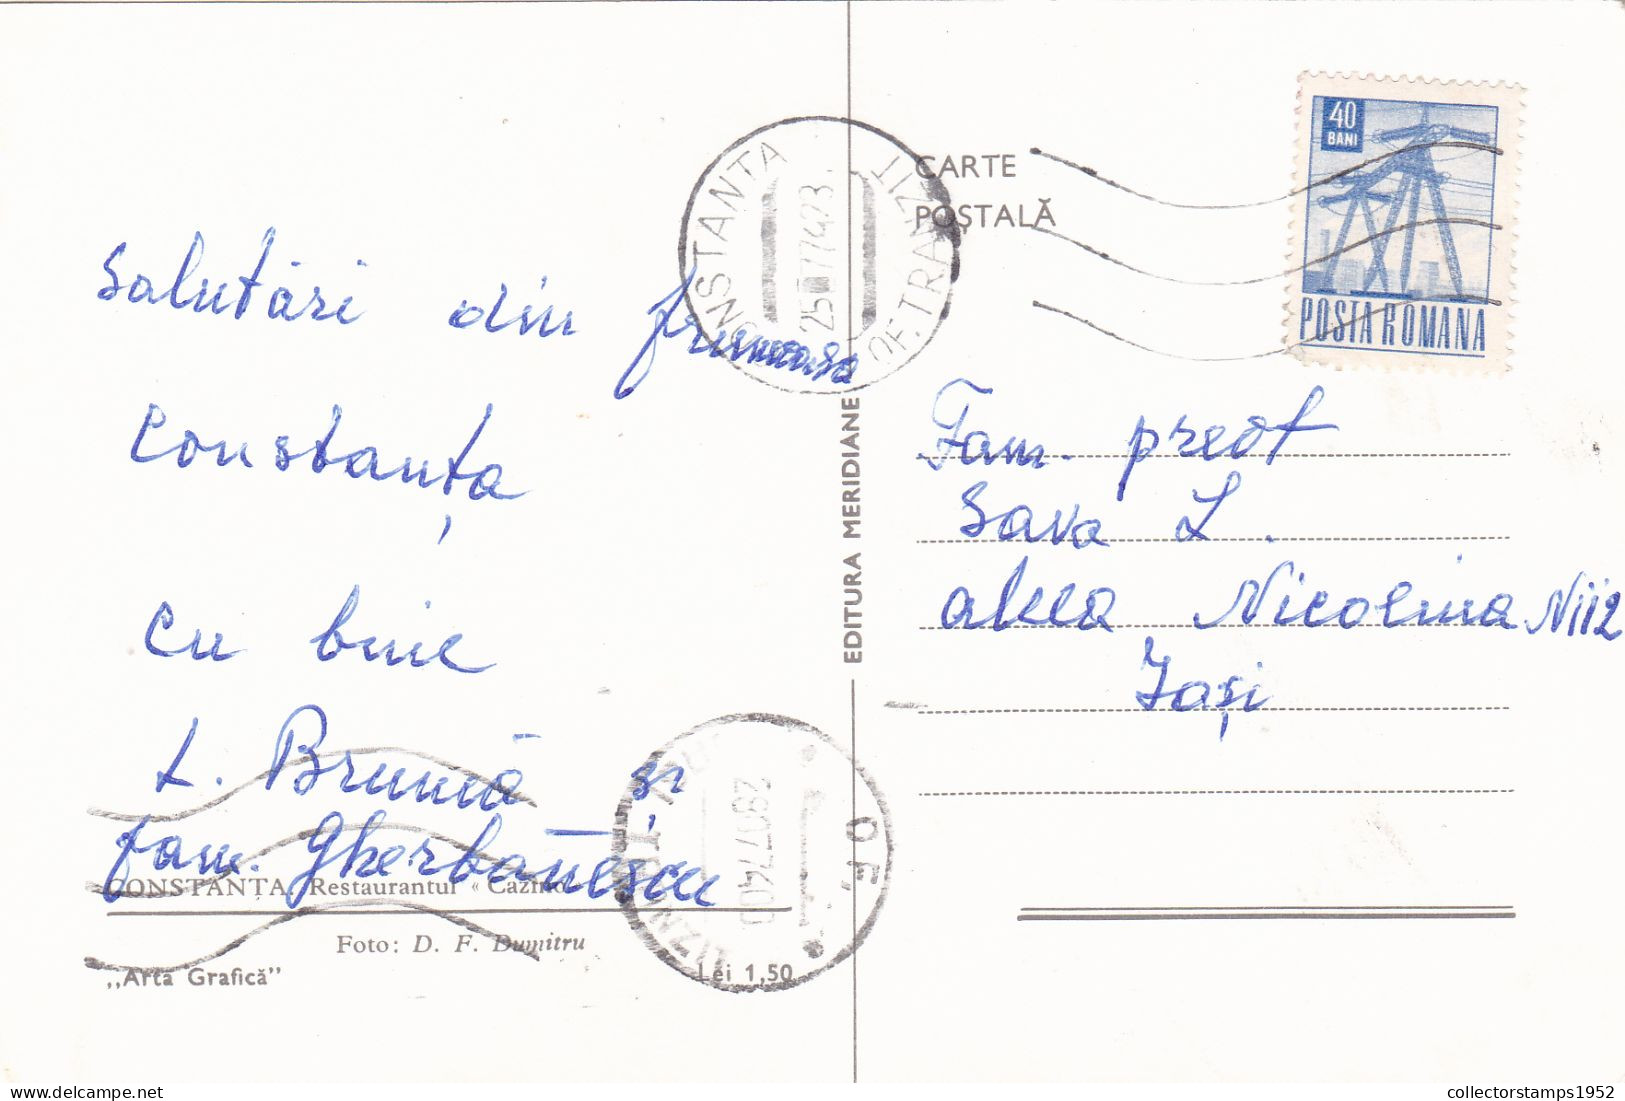 Salutări din frumoasa
Constanța
cu bine
L. Brumă și
fam. Gherbănescu
CONSTANȚA. Restaurantul « Cazino »
Foto: D. F. Dumitru
„Arta Grafică”
Lei 1,50
EDITURA MERIDIANE
CONSTANTA
OF. TRANZIT
25 77423
CARTE
POȘTALĂ
40
BANI
POSTA ROMANA
Fam. preot
Sava L.
aleea Nicolina N112
Iași
TRANZIT
OF.
collectorstamps1952